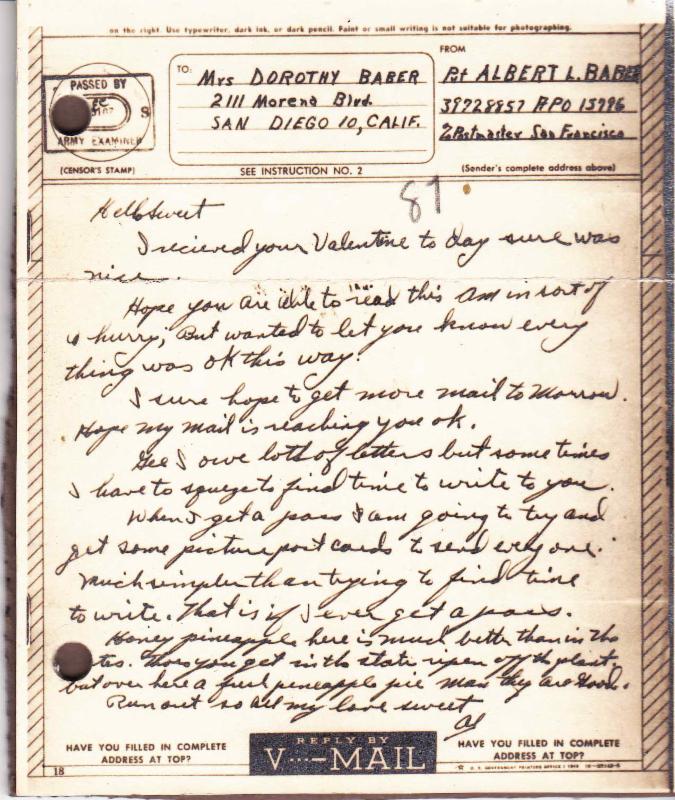 on the right. Use typewriter, dark ink, or dark pencil. Faint or small writing is not suitable for photographing.
PASSED BY
S
ARMY EXAMINER
(CENSOR'S STAMP)
TO:
Mrs DOROTHY BABER
2111 Morena Blvd.
SAN DIEGO 10, CALIF.
SEE INSTRUCTION NO. 2
FROM
Pvt ALBERT L. BABER
39728857 APO 15996
% Postmaster San Francisco
(Sender's complete address above)
87
Hello Sweet
I recieved your Valentine to day sure was
nice.
Hope you are able to read this am in sort of
a hurry, But wanted to let you know every
thing was ok this way.
I sure hope to get more mail to Morrow.
Hope my mail is reaching you ok.
Gee I owe lots of letters but some times
I have to squeze to find time to write to you.
When I get a pass I am going to try and
get some picture post cards to send every one.
Much simpler than trying to find time
to write. That is if I ever get a pass.
Honey pineapple here is much better than in the
tes. Those you get in the state ripen off the plant.
but over here a fresh pineapple pie man they are Good.
Run out so all my love sweet
Al
HAVE YOU FILLED IN COMPLETE
ADDRESS AT TOP?
REPLY BY
V···—MAIL
HAVE YOU FILLED IN COMPLETE
ADDRESS AT TOP?
18
U. S. GOVERNMENT PRINTING OFFICE